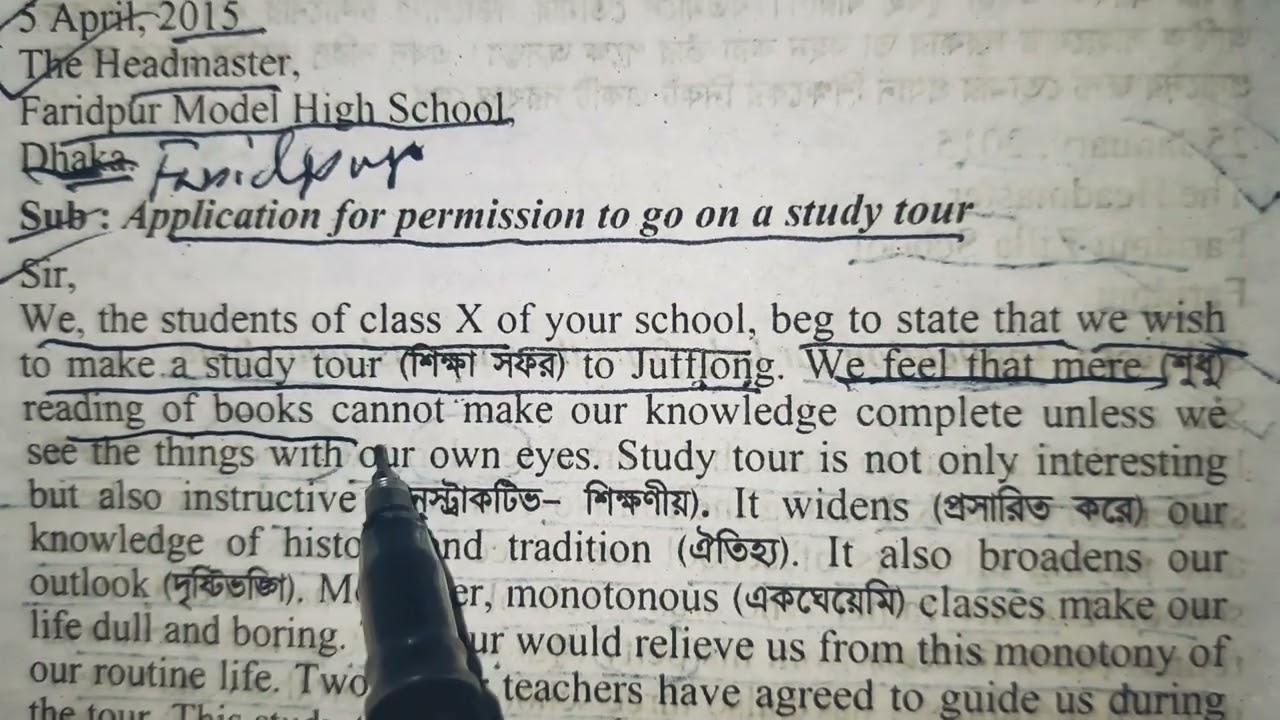 5 April, 2015
The Headmaster,
Faridpur Model High School,
Dhaka. Faridpur
Sub : Application for permission to go on a study tour
Sir,
We, the students of class X of your school, beg to state that we wish
to make a study tour (শিক্ষা সফর) to Jufflong. We feel that mere (শুধু)
reading of books cannot make our knowledge complete unless we
see the things with our own eyes. Study tour is not only interesting
but also instructive শিক্ষণীয়). It widens (প্রসারিত করে) our
knowledge of tradition (ঐতিহ্য). It also broadens our
outlook (দৃষ্টিভঙ্গি). monotonous (একঘেয়েমি) classes make our
life dull and boring. would relieve us from this monotony of
our routine life. Two teachers have agreed to guide us during
the tour. This